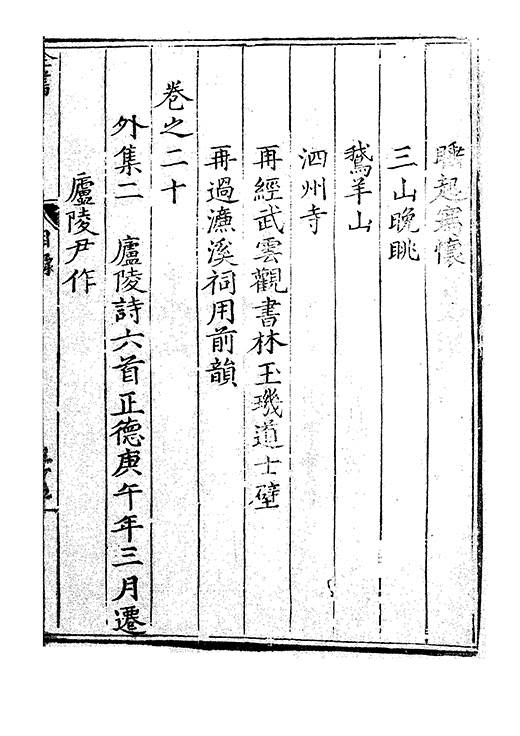 睡起寫懷
三山晚眺
鵞羊山
泗州寺
再經武雲觀書林玉璣道士壁
再過濂溪祠用前韻
卷之二十
外集二 廬陵詩六首正德庚午年三月遷
廬陵尹作
全書
目錄